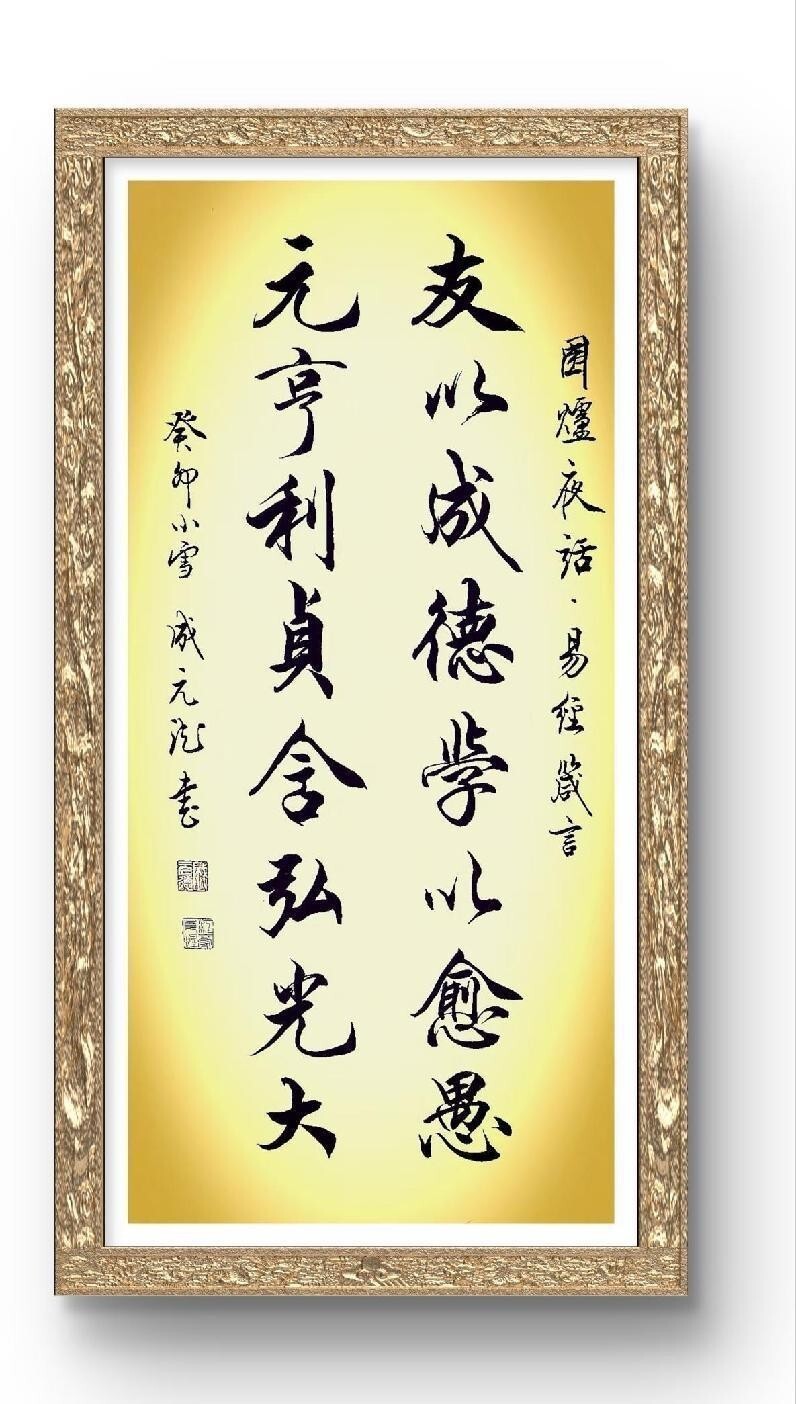 围爐夜話·易经箴言
友以成德学以愈愚
元亨利貞含弘光大
癸卯小雪 成元 书